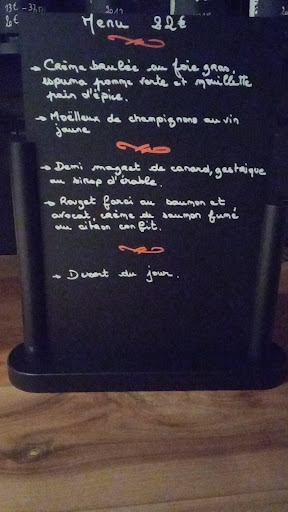 Menu 22€
→ Crème brulée au foie gras,
espuma pomme verte et mouillette
pain d'épice.
→ Moëlleux de champignons au vin
jaune
→ Demi magret de canard, gastrique
au sirop d'érable.
→ Rouget farci au saumon et
avocat, crème de saumon fumé
au citron confit.
→ Dessert du jour.